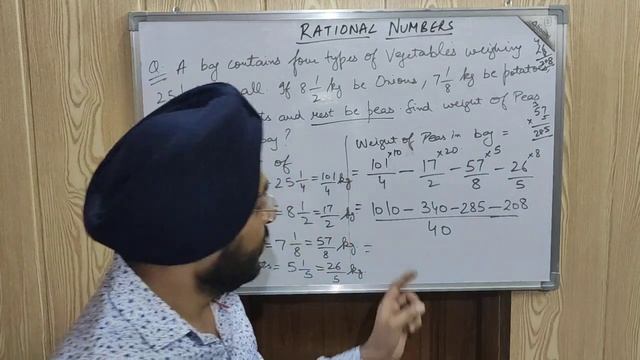 RATIONAL NUMBERS
Q: A bag contains four types of Vegetables weighing
25 1 all. If 8 1/2 kg be Onions, 7 1/8 kg be potatoes,
ts and rest be peas. find weight of Peas
bag?
of
25 1/4 = 101/4 kg
= 8 1/2 = 17/2 kg
= 7 1/8 = 57/8 kg
= 5 1/5 = 26/5 kg
Weight of Peas in bag =
= 101/4 ×10 − 17/2 ×20 − 57/8 ×5 − 26/5 ×8
= 1010 − 340 − 285 − 208 / 40
=
26
208
57
× 5
285